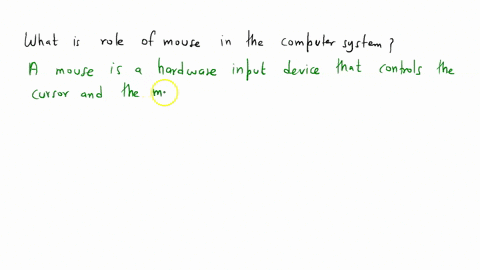 What is role of mouse in the computer system?
A mouse is a hardware input device that controls the
cursor and the m